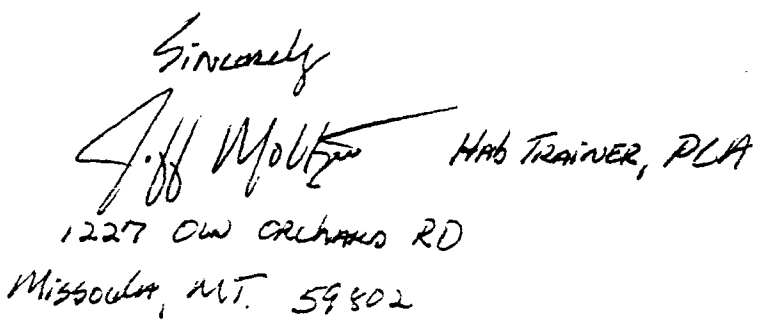 Sincerely
Jeff Hab Trainer, PLA
1227 Old Orchard RD
Missoula, MT. 59802